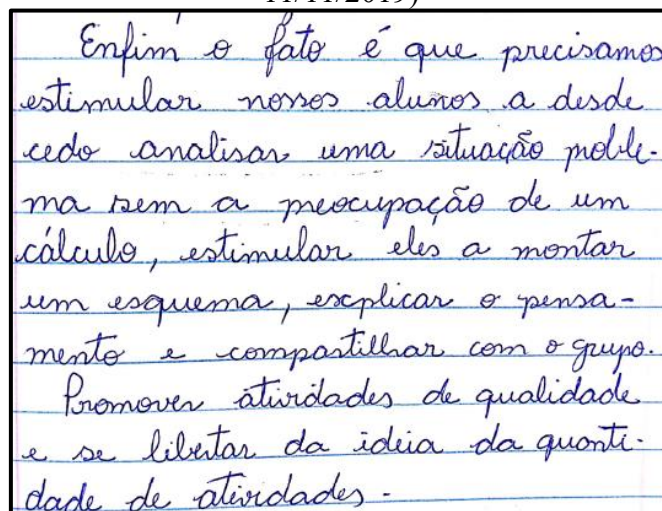 11/11/2019)
Enfim o fato é que precisamos
estimular nossos alunos a desde
cedo analisar uma situação proble-
ma sem a preocupação de um
cálculo, estimular eles a montar
um esquema, explicar o pensa-
mento e compartilhar com o grupo.
Promover atividades de qualidade
e se libertar da ideia da quanti-
dade de atividades.